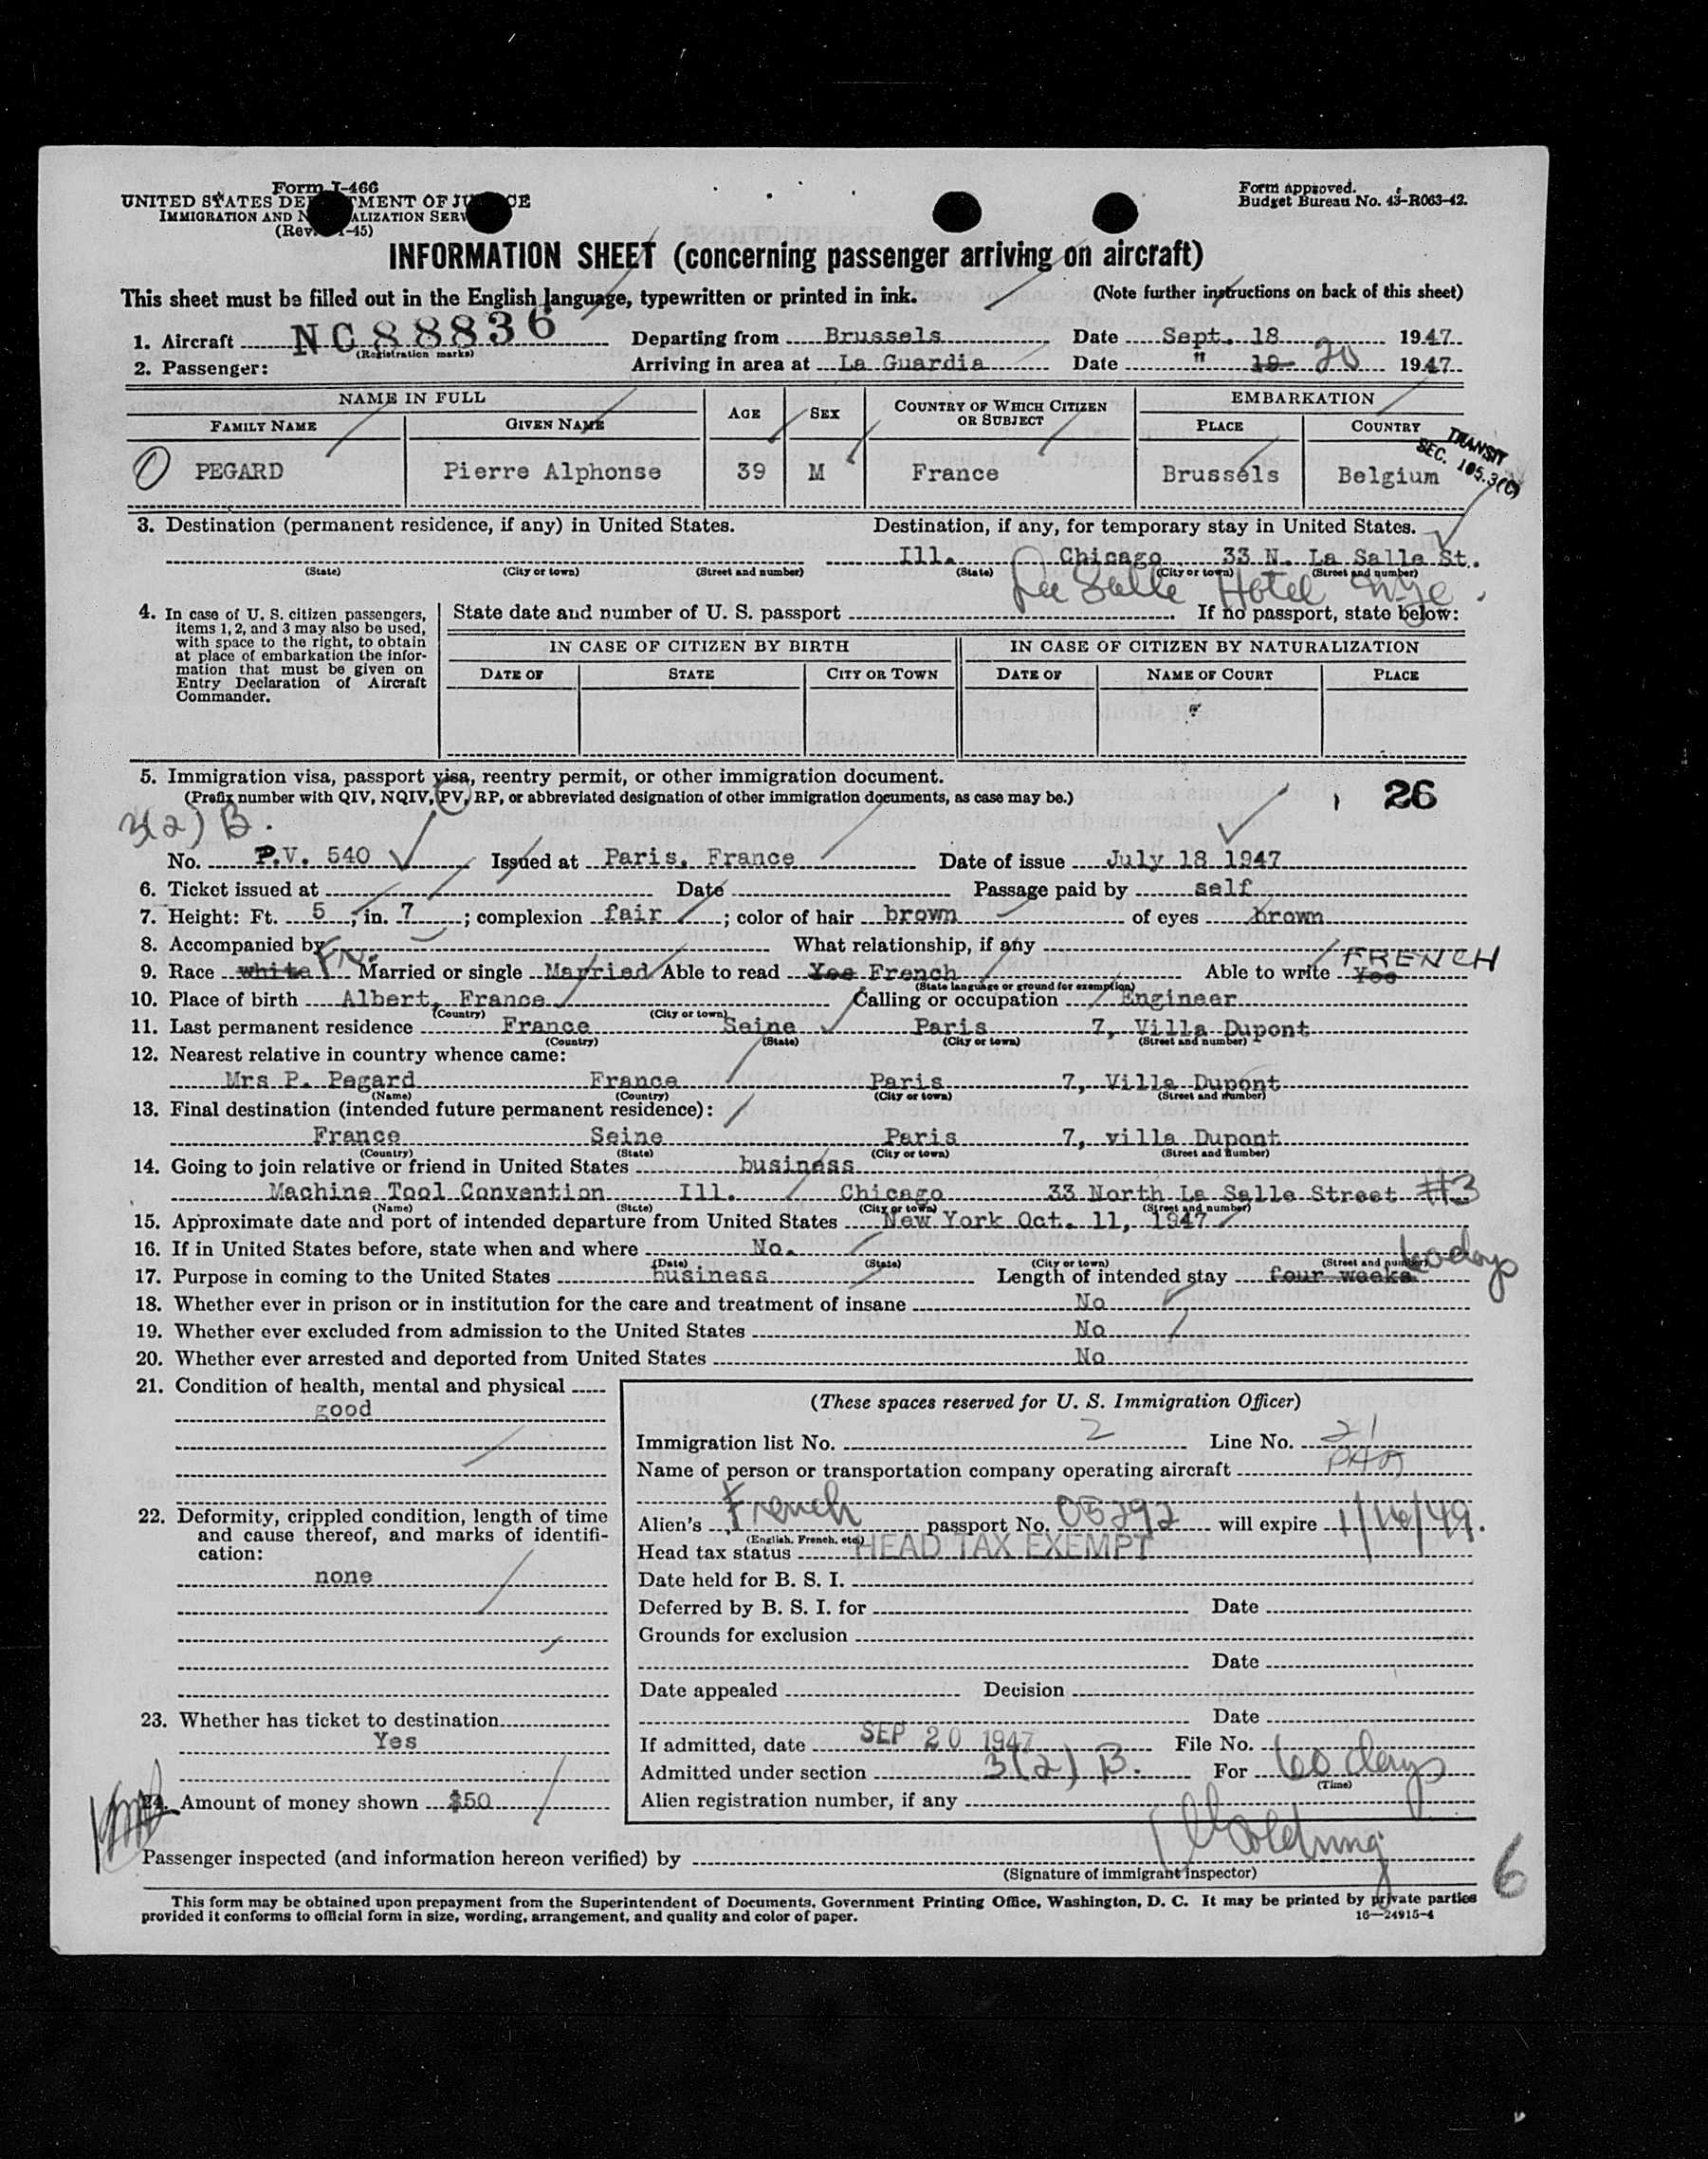 Form I-466
UNITED STATES DE TMENT OF JU CE
IMMIGRATION AND N ALIZATION SERV
(Rev. -45)
Form approved.
Budget Bureau No. 43-R063-42.
INFORMATION SHEET (concerning passenger arriving on aircraft)
This sheet must be filled out in the English language, typewritten or printed in ink. (Note further instructions on back of this sheet)
1. Aircraft NC88836 Departing from Brussels Date Sept. 18 1947
(Registration marks)
2. Passenger: Arriving in area at La Guardia Date " 19 20 1947
NAME IN FULL AGE SEX COUNTRY OF WHICH CITIZEN OR SUBJECT EMBARKATION
FAMILY NAME GIVEN NAME PLACE COUNTRY
TRANSIT
SEC. 105.3(C)
PEGARD Pierre Alphonse 39 M France Brussels Belgium
3. Destination (permanent residence, if any) in United States. Destination, if any, for temporary stay in United States.
Ill. Chicago 33 N. La Salle St.
(State) (City or town) (Street and number) (State) (City or town) (Street and number)
La Salle Hotel
4. In case of U. S. citizen passengers, items 1, 2, and 3 may also be used, with space to the right, to obtain at place of embarkation the information that must be given on Entry Declaration of Aircraft Commander.
State date and number of U. S. passport If no passport, state below:
IN CASE OF CITIZEN BY BIRTH IN CASE OF CITIZEN BY NATURALIZATION
DATE OF STATE CITY OR TOWN DATE OF NAME OF COURT PLACE
5. Immigration visa, passport visa, reentry permit, or other immigration document.
(Prefix number with QIV, NQIV, PV, RP, or abbreviated designation of other immigration documents, as case may be.) 26
3(2) B.
No. P.V. 540 Issued at Paris, France Date of issue July 18 1947
6. Ticket issued at Date Passage paid by self
7. Height: Ft. 5 ; in. 7 ; complexion fair ; color of hair brown of eyes brown
8. Accompanied by What relationship, if any
9. Race white Fr. Married or single Married Able to read Yes French Able to write Yes FRENCH
(State language or ground for exemption)
10. Place of birth Albert, France Calling or occupation Engineer
(Country) (City or town)
11. Last permanent residence France Seine Paris 7, Villa Dupont
(Country) (State) (City or town) (Street and number)
12. Nearest relative in country whence came:
Mrs P. Pegard France Paris 7, Villa Dupont
(Name) (Country) (City or town) (Street and number)
13. Final destination (intended future permanent residence):
France Seine Paris 7, villa Dupont
(Country) (State) (City or town) (Street and number)
14. Going to join relative or friend in United States business
Machine Tool Convention Ill. Chicago 33 North La Salle Street #3
(Name) (State) (City or town) (Street and number)
15. Approximate date and port of intended departure from United States New York Oct. 11, 1947
16. If in United States before, state when and where No.
(Date) (State) (City or town) (Street and number)
17. Purpose in coming to the United States business Length of intended stay four weeks 60 days
18. Whether ever in prison or in institution for the care and treatment of insane No
19. Whether ever excluded from admission to the United States No
20. Whether ever arrested and deported from United States No
21. Condition of health, mental and physical
good
22. Deformity, crippled condition, length of time and cause thereof, and marks of identification:
none
23. Whether has ticket to destination
Yes
24. Amount of money shown $50
(These spaces reserved for U. S. Immigration Officer)
Immigration list No. 2 Line No. 21
Name of person or transportation company operating aircraft PAA
Alien's French passport No. 05292 will expire 1/16/49.
(English, French, etc.)
Head tax status HEAD TAX EXEMPT
Date held for B. S. I.
Deferred by B. S. I. for Date
Grounds for exclusion
Date
Date appealed Decision
Date
If admitted, date SEP 20 1947 File No.
Admitted under section 3(2) B. For 60 days
(Time)
Alien registration number, if any
Passenger inspected (and information hereon verified) by Golding
(Signature of immigrant inspector)
6
This form may be obtained upon prepayment from the Superintendent of Documents, Government Printing Office, Washington, D. C. It may be printed by private parties
provided it conforms to official form in size, wording, arrangement, and quality and color of paper. 16—24915-4